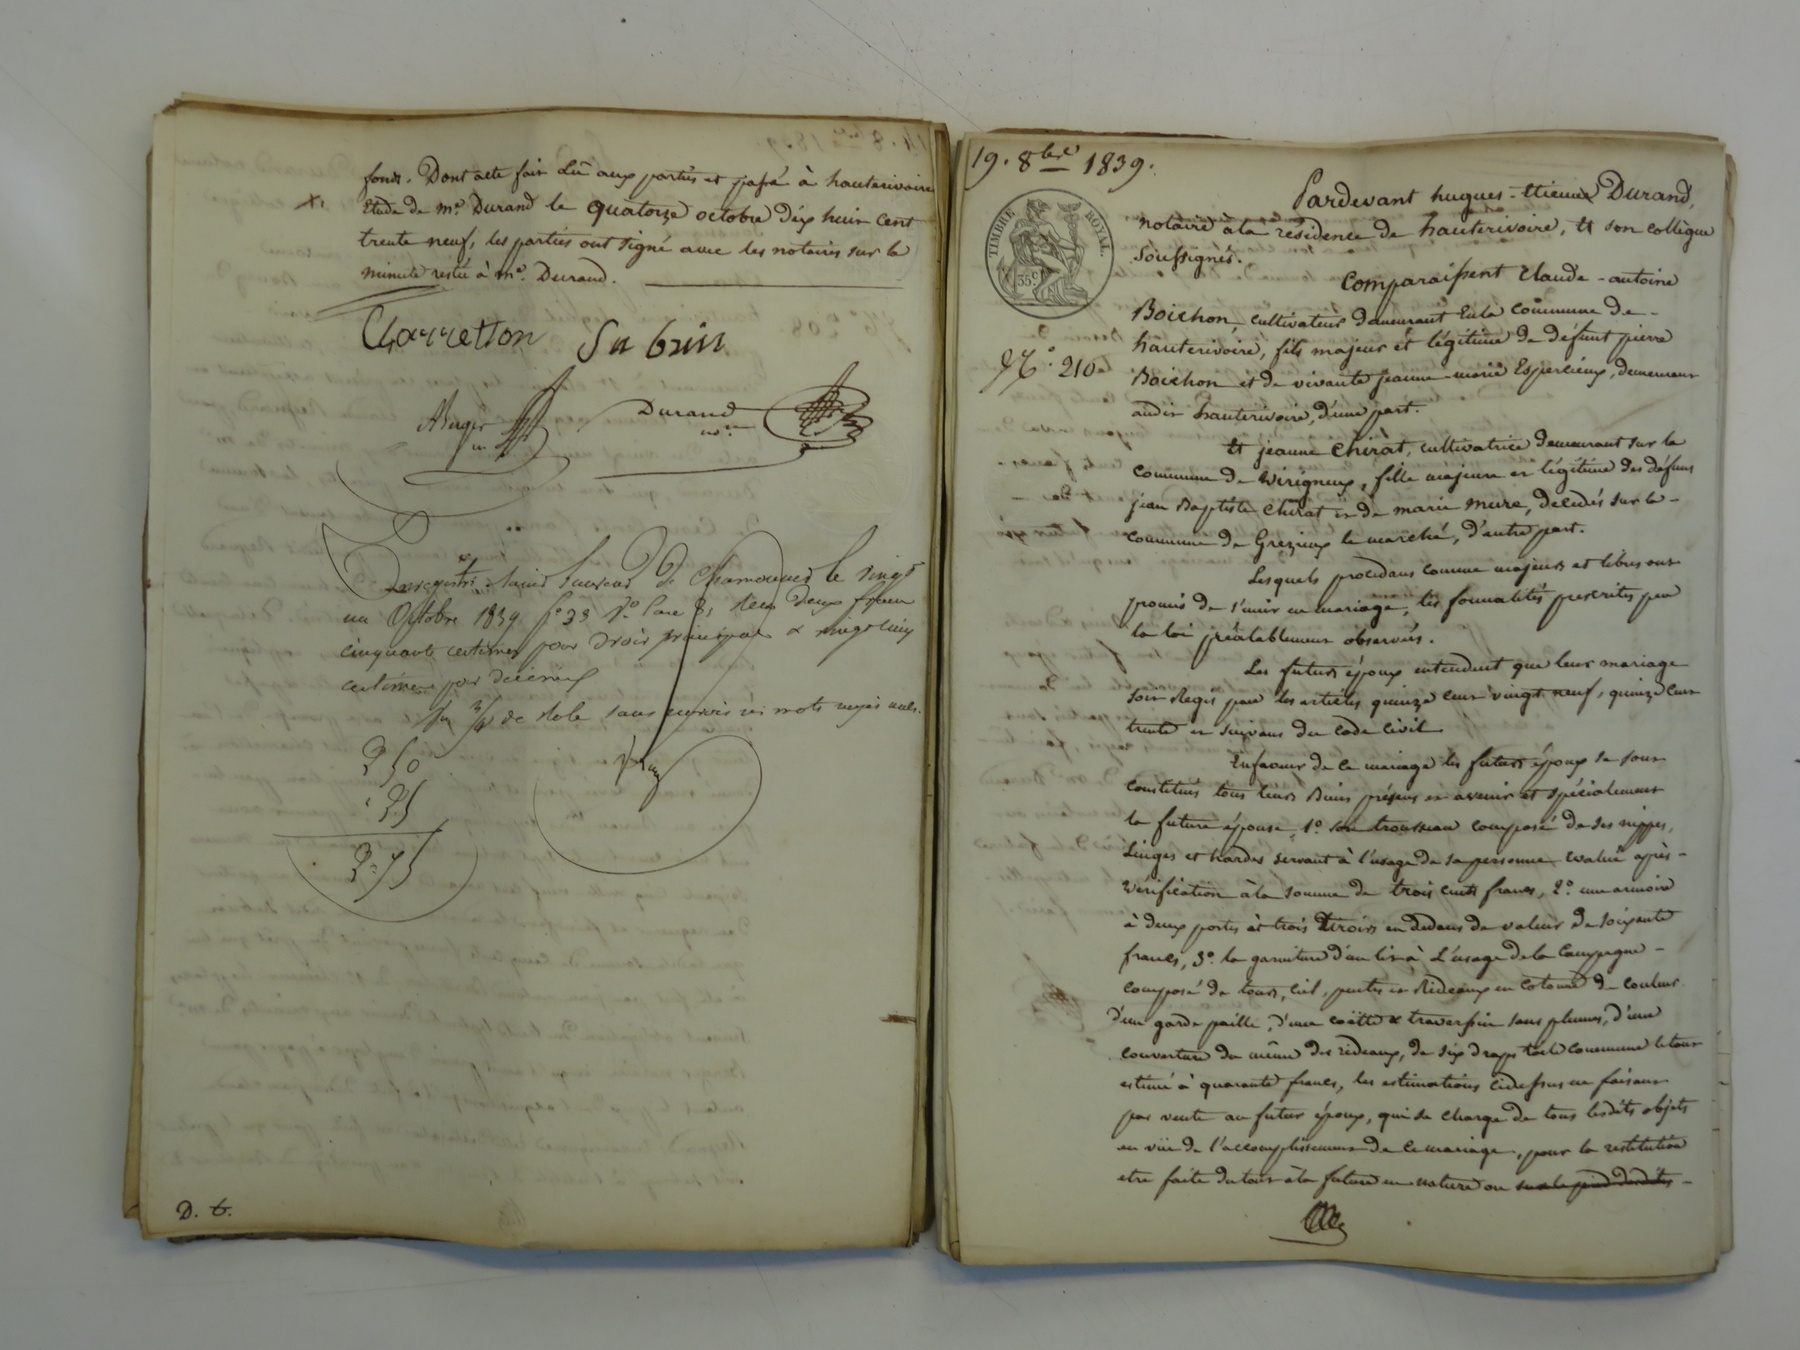 fonds. Dont acte fait Lû aux parties et passé à hauterivoire
Etude de me. Durand le quatorze octobre dix huit cent
trente neuf, les parties ont signé avec les notaires sur la
minute restée à me. Durand.
Subrin
Durand
Enregistré le vingt
un Octobre 1839 deux francs
cinquante centimes pour droit principal & vingt cinq
centimes pour décime
de Rôle sans mots rayés nuls.
2 50
. 25
2.75
D. t.
19. 8bre 1839.
TIMBRE ROYAL
35c
No. 210
Pardevant hugues-Etienne Durand,
notaire à la résidence de hauterivoire, Et son collègue
soussignés.
Comparaissent Claude-antoine
Boichon, cultivateur demeurant En la commune de-
hauterivoire, fils majeur et légitime de défunt pierre
Boichon et de vivante jeanne-marie Expercieux, demeurant
audit hauterivoire, d'une part.
Et jeanne Chirat, cultivatrice demeurant sur la
commune de Virigneux, fille majeure et légitime des défunts
jean Baptiste Chirat et de marie mure, décédés sur la-
commune de Grezieux le marché, d'autre part.
Lesquels procédant comme majeurs et libres ont
promis de s'unir en mariage, les formalités prescrites par
la loi préalablement observées.
Les futurs époux entendent que leur mariage
soit Régis par les articles quinze cent vingt neuf, quinze cent
trente et suivans du Code Civil
En faveur de ce mariage les futurs époux se sont
Constitués tous leurs Biens présens et avenir et spécialement
la future épouse, 1o. son trousseau composé de ses nippes,
Linges et hardes servant à l'usage de sa personne évalué après-
Vérification à la somme de trois cents francs, 2o. une armoire
à deux portes et trois tiroirs en dedans de valeur de soixante
francs, 3o. la garniture d'un lit à L'usage de la Campagne-
composé de tours, Ciel, pentes et Rideaux en cotonne de couleur
d'un garde paille, d'une coëtte & traversin sans plumes, d'une
couverture du même des rideaux, de six draps toile commune le tout
estimé à quarante francs, les estimations cidessus en faisant
pas vente au futur époux, qui se charge de tous lesdits objets
en vüe de l'accomplissement de ce mariage, pour la restitution
etre faite du tout à la future en nature ou